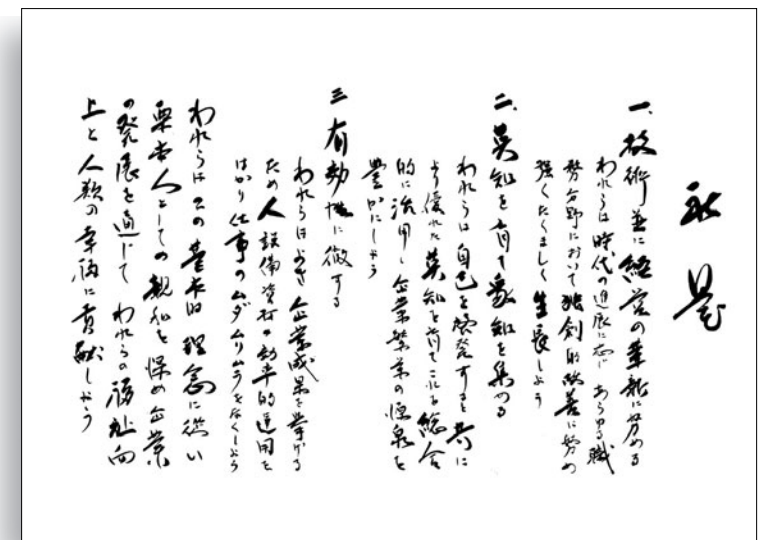 社是
一、技術並に経営の革新に努める
われらは時代の進展に応じ あらゆる職
務分野において独創的改善に努め
強くたくましく生長しよう
二、英知を育て衆知を集める
われらは自己を啓発すると共に
より優れた英知を育てこれを総合
的に活用し企業繁栄の源泉を
豊かにしよう
三 有効性に徹する
われらはよき企業成果を挙げる
ため人設備資材の効率的運用を
はかり仕事のムダムリムラをなくしよう
われらはこの基本的理念に従い
栗本人としての親和を深め企業
の発展を通じて われらの福祉向
上と人類の幸福に貢献しよう